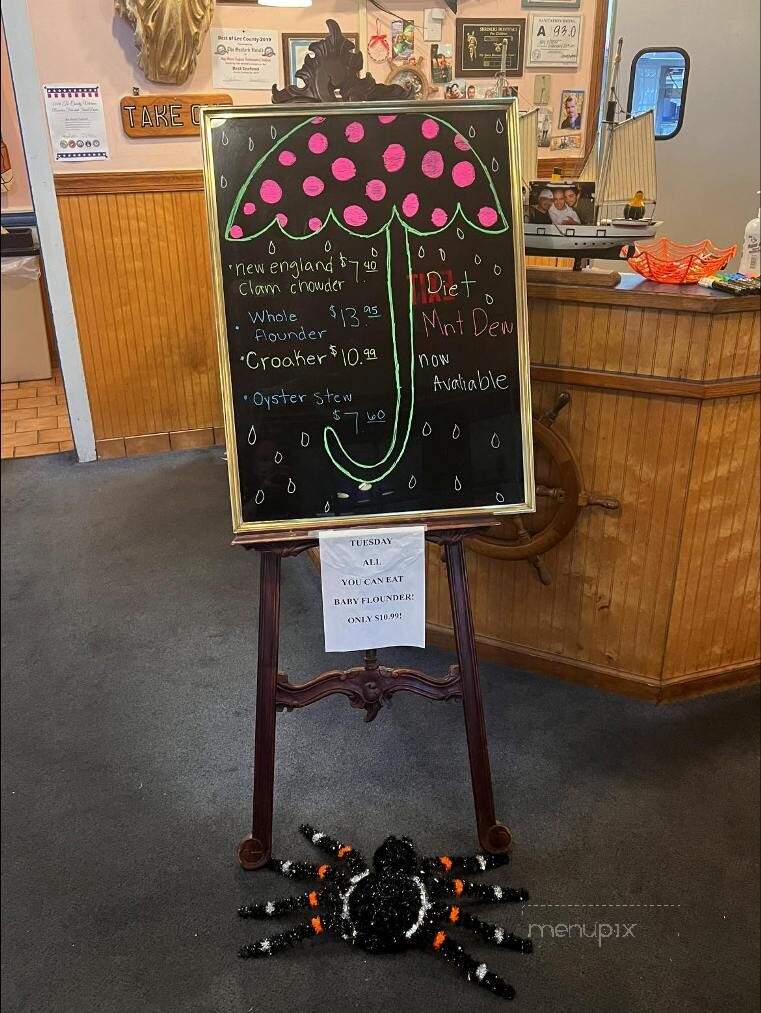 Best of Lee County 2019
TAKE O
A 93.0
• new england $7.40
clam chowder
• Whole $13.95
flounder
• Croaker $10.99
• Oyster Stew
$7.60
EXIT
Diet
Mnt Dew
now
Avaliable
TUESDAY
ALL
YOU CAN EAT
BABY FLOUNDER!
ONLY $10.99!
menupix